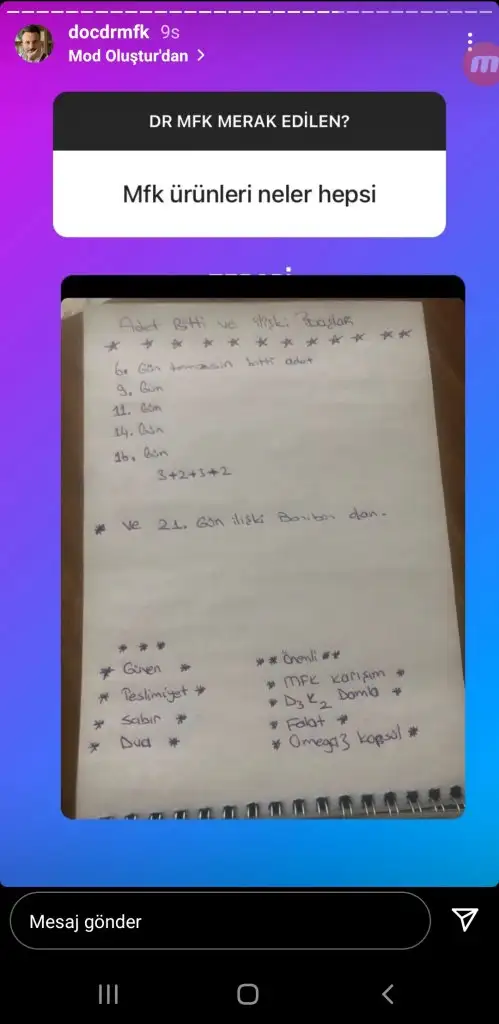 docdrmfk 9s
Mod Oluştur'dan >
m
DR MFK MERAK EDİLEN?
Mfk ürünleri neler hepsi
Adet Bitti ve ilişki Başlar
6. Gün bitti adet
9. Gün
11. Gün
14. Gün
16. Gün
3+2+3+2
* ve 21. Gün ilişki dan.
* Güven *
* Teslimiyet *
* Sabır *
* Dua *
** Önemli **
* MFK Karışım *
* D3 K2 Damla *
* Folat *
* Omega 3 kapsül *
Mesaj gönder